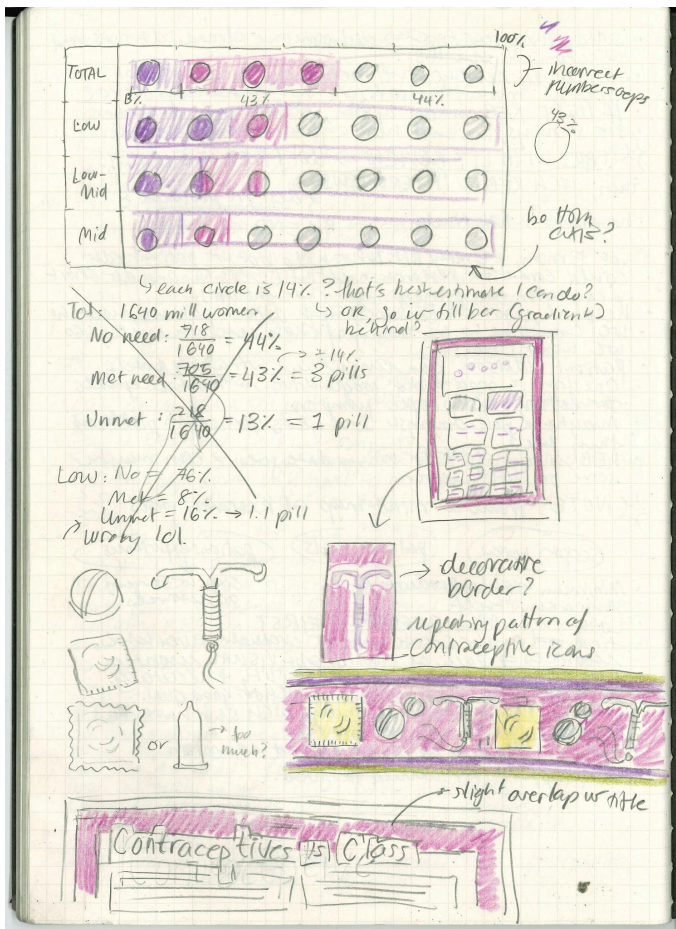 100%
TOTAL
incorrect
numbers oops
13%
43%
44%
43%
LOW
LOW-
Mid
Mid
bottom
axis?
↳ each circle is 14% ? that's best estimate I can do?
↳ OR, go w fill bar (gradient)
behind?
Tot: 1640 mill women
No need: 718/1640 = 44%
÷ 14%
Met need: 705/1640 = 43% = 3 pills
Unmet: 218/1640 = 13% = 1 pill
Low: No = 76%
Met = 8%
Unmet = 16% → 1.1 pill
wrong lol.
decorative
border?
repeating pattern of
contraceptive icons
or
→ too
much?
slight overlap w title
Contraceptives vs Class